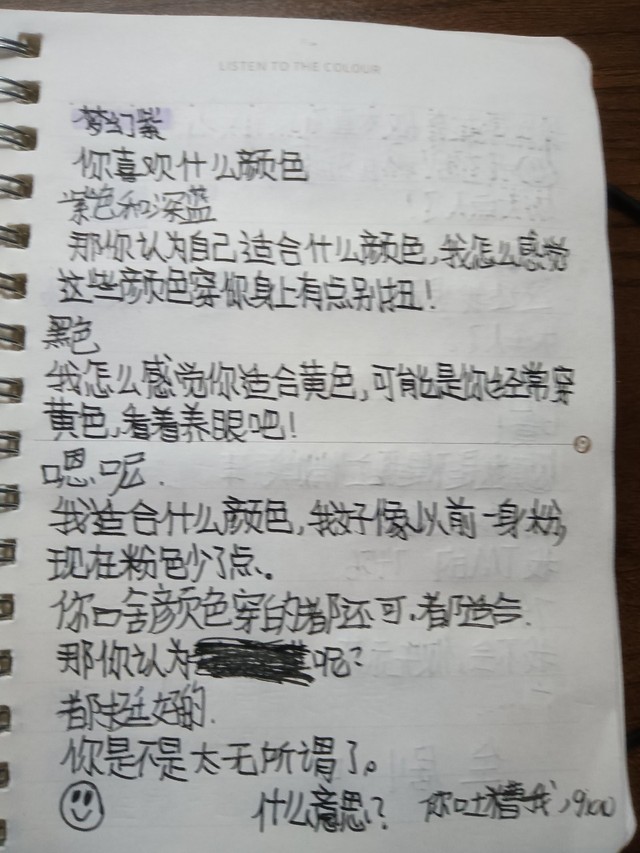 LISTEN TO THE COLOUR
梦幻紫
你喜欢什么颜色
紫色和深蓝
那你认为自己适合什么颜色,我怎么感觉
这些颜色穿你身上有点别扭!
黑色
我怎么感觉你适合黄色,可能是你经常穿
黄色,看着养眼吧!
嗯.呢.
我适合什么颜色,我好像以前一身粉,
现在粉色少了点、。
你口舍颜色穿的都还可.都适合.
那你认为 呢?
都挺好的.
你是不是太无所谓了。
什么意思? 你吐糟我,